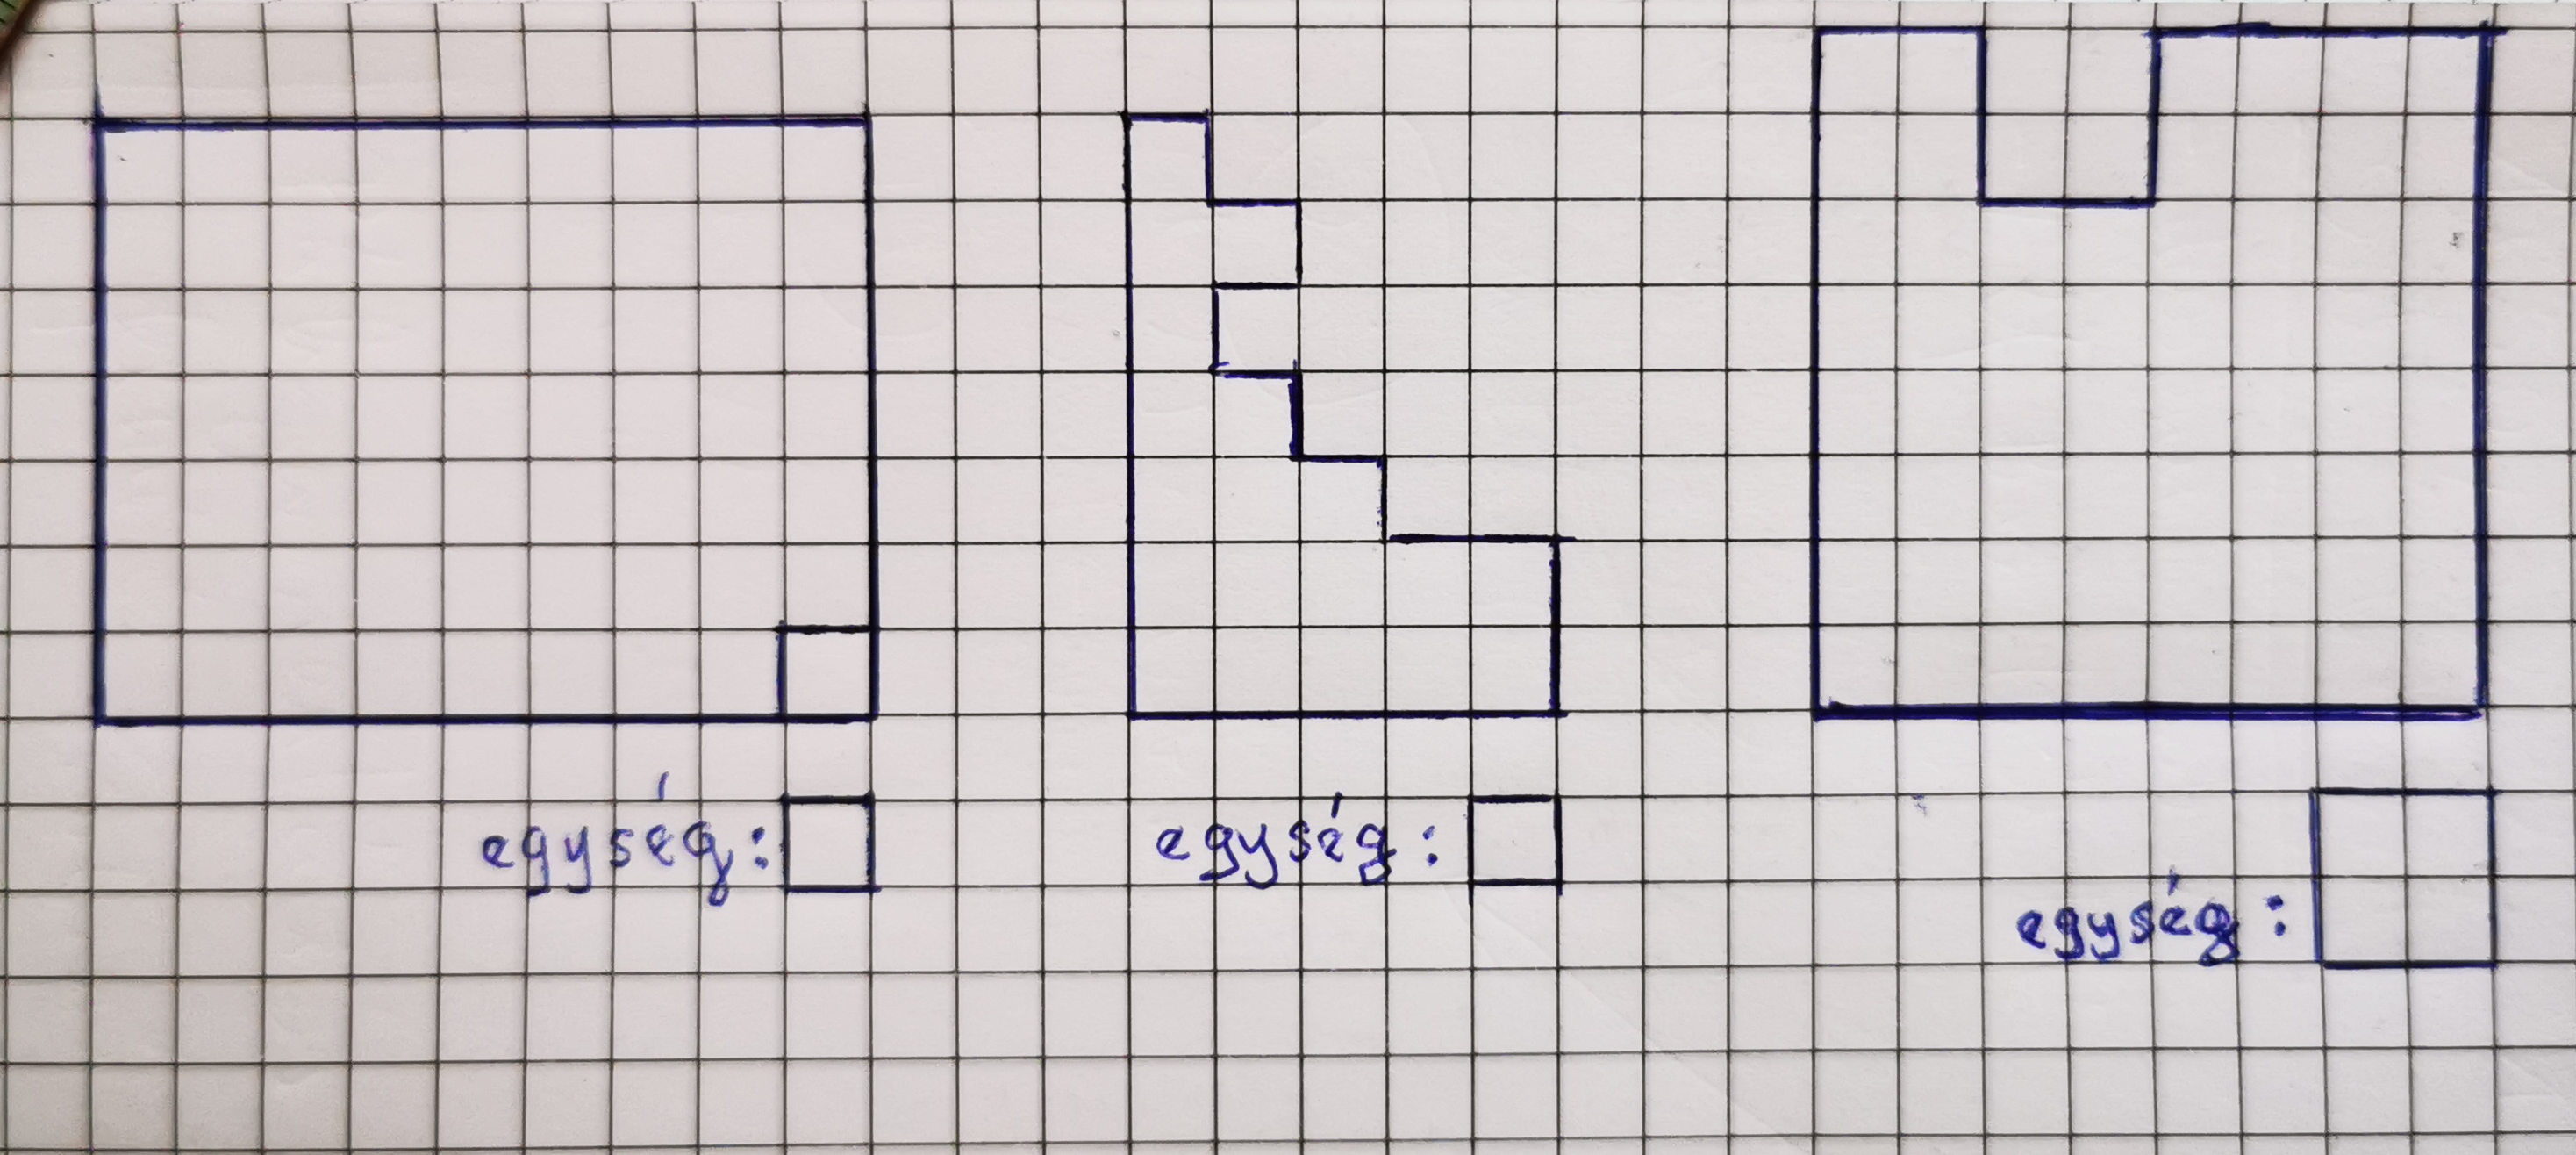 egység:
egység:
egység: